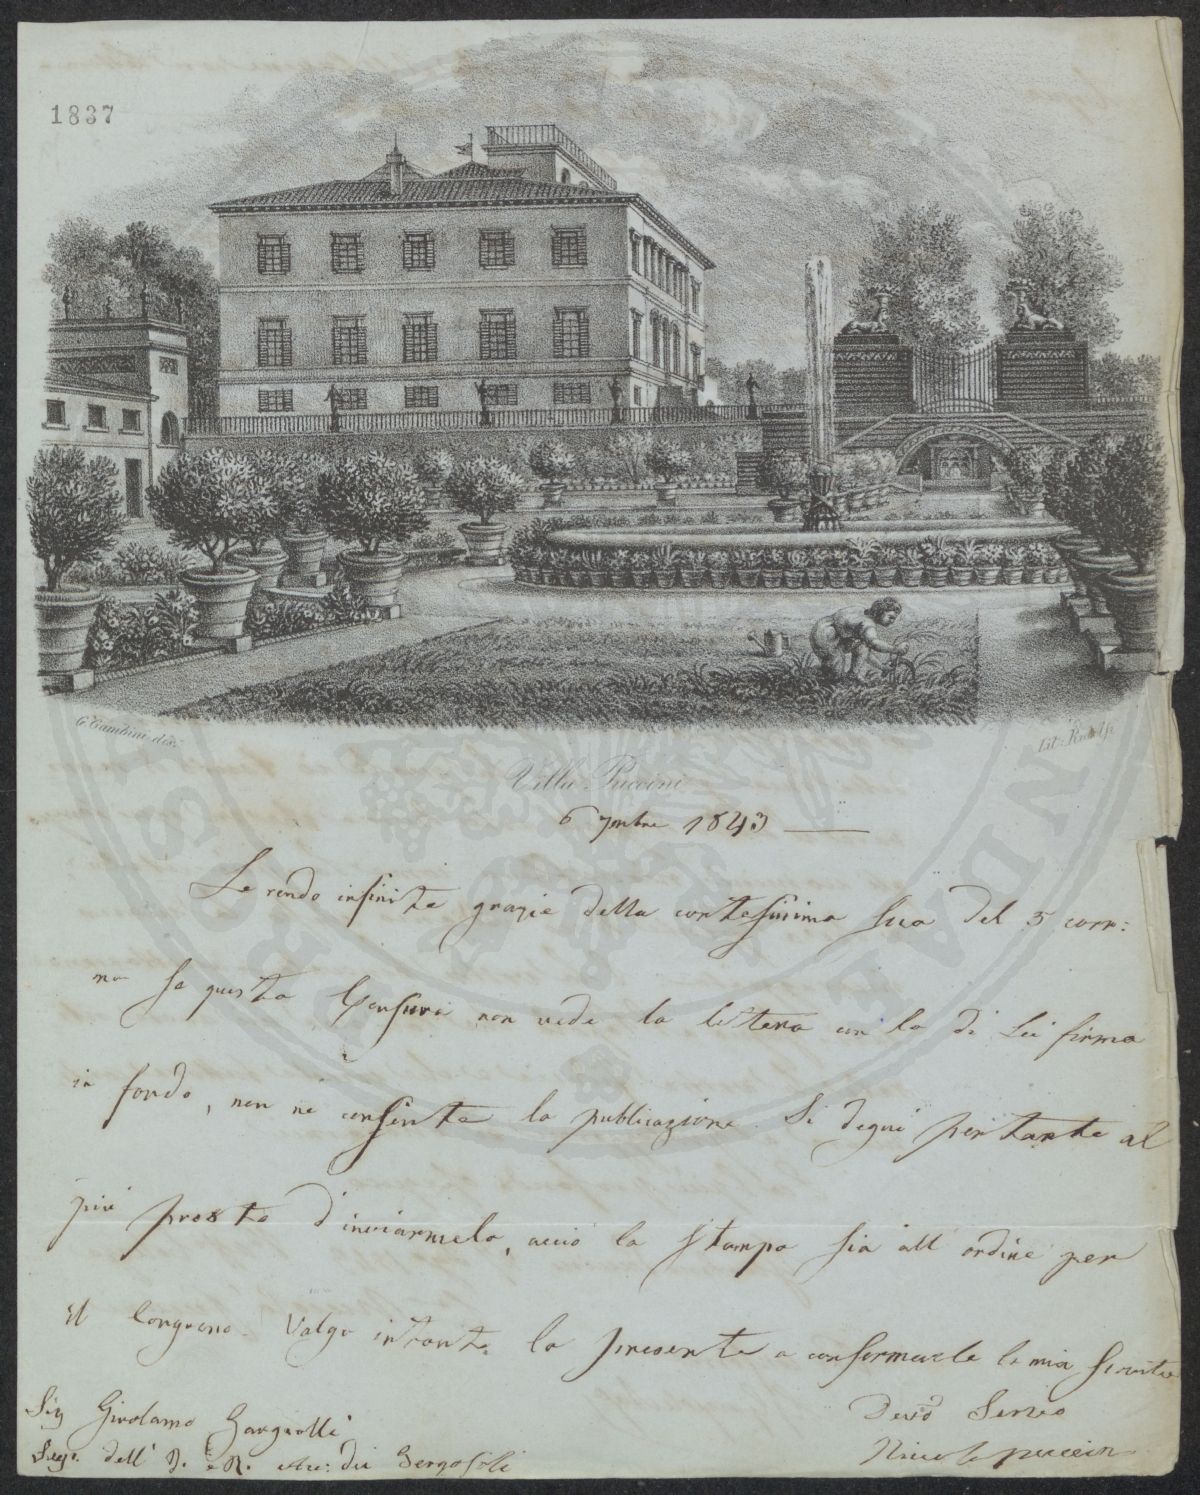 1837
G. Gambini dis.
Lit. Ridolfi
Villa Puccini
6 7mbre 1843
Le rendo infinite grazie della cortesissima sua del 5 corr:
ma se questa Censura non vede la lettera con la di Lei firma
in fondo, non ne consente la publicazione. Si degni pertanto al
più presto d'inviarmela, acciò la stampa sia all'ordine per
il Congresso. Valga intanto la presente a confermarle la mia servitù
Devo Servo
Niccolò Puccini
Sig Girolamo Gargiolli
Seg. dell' I. e R. Acc: dei Georgofili